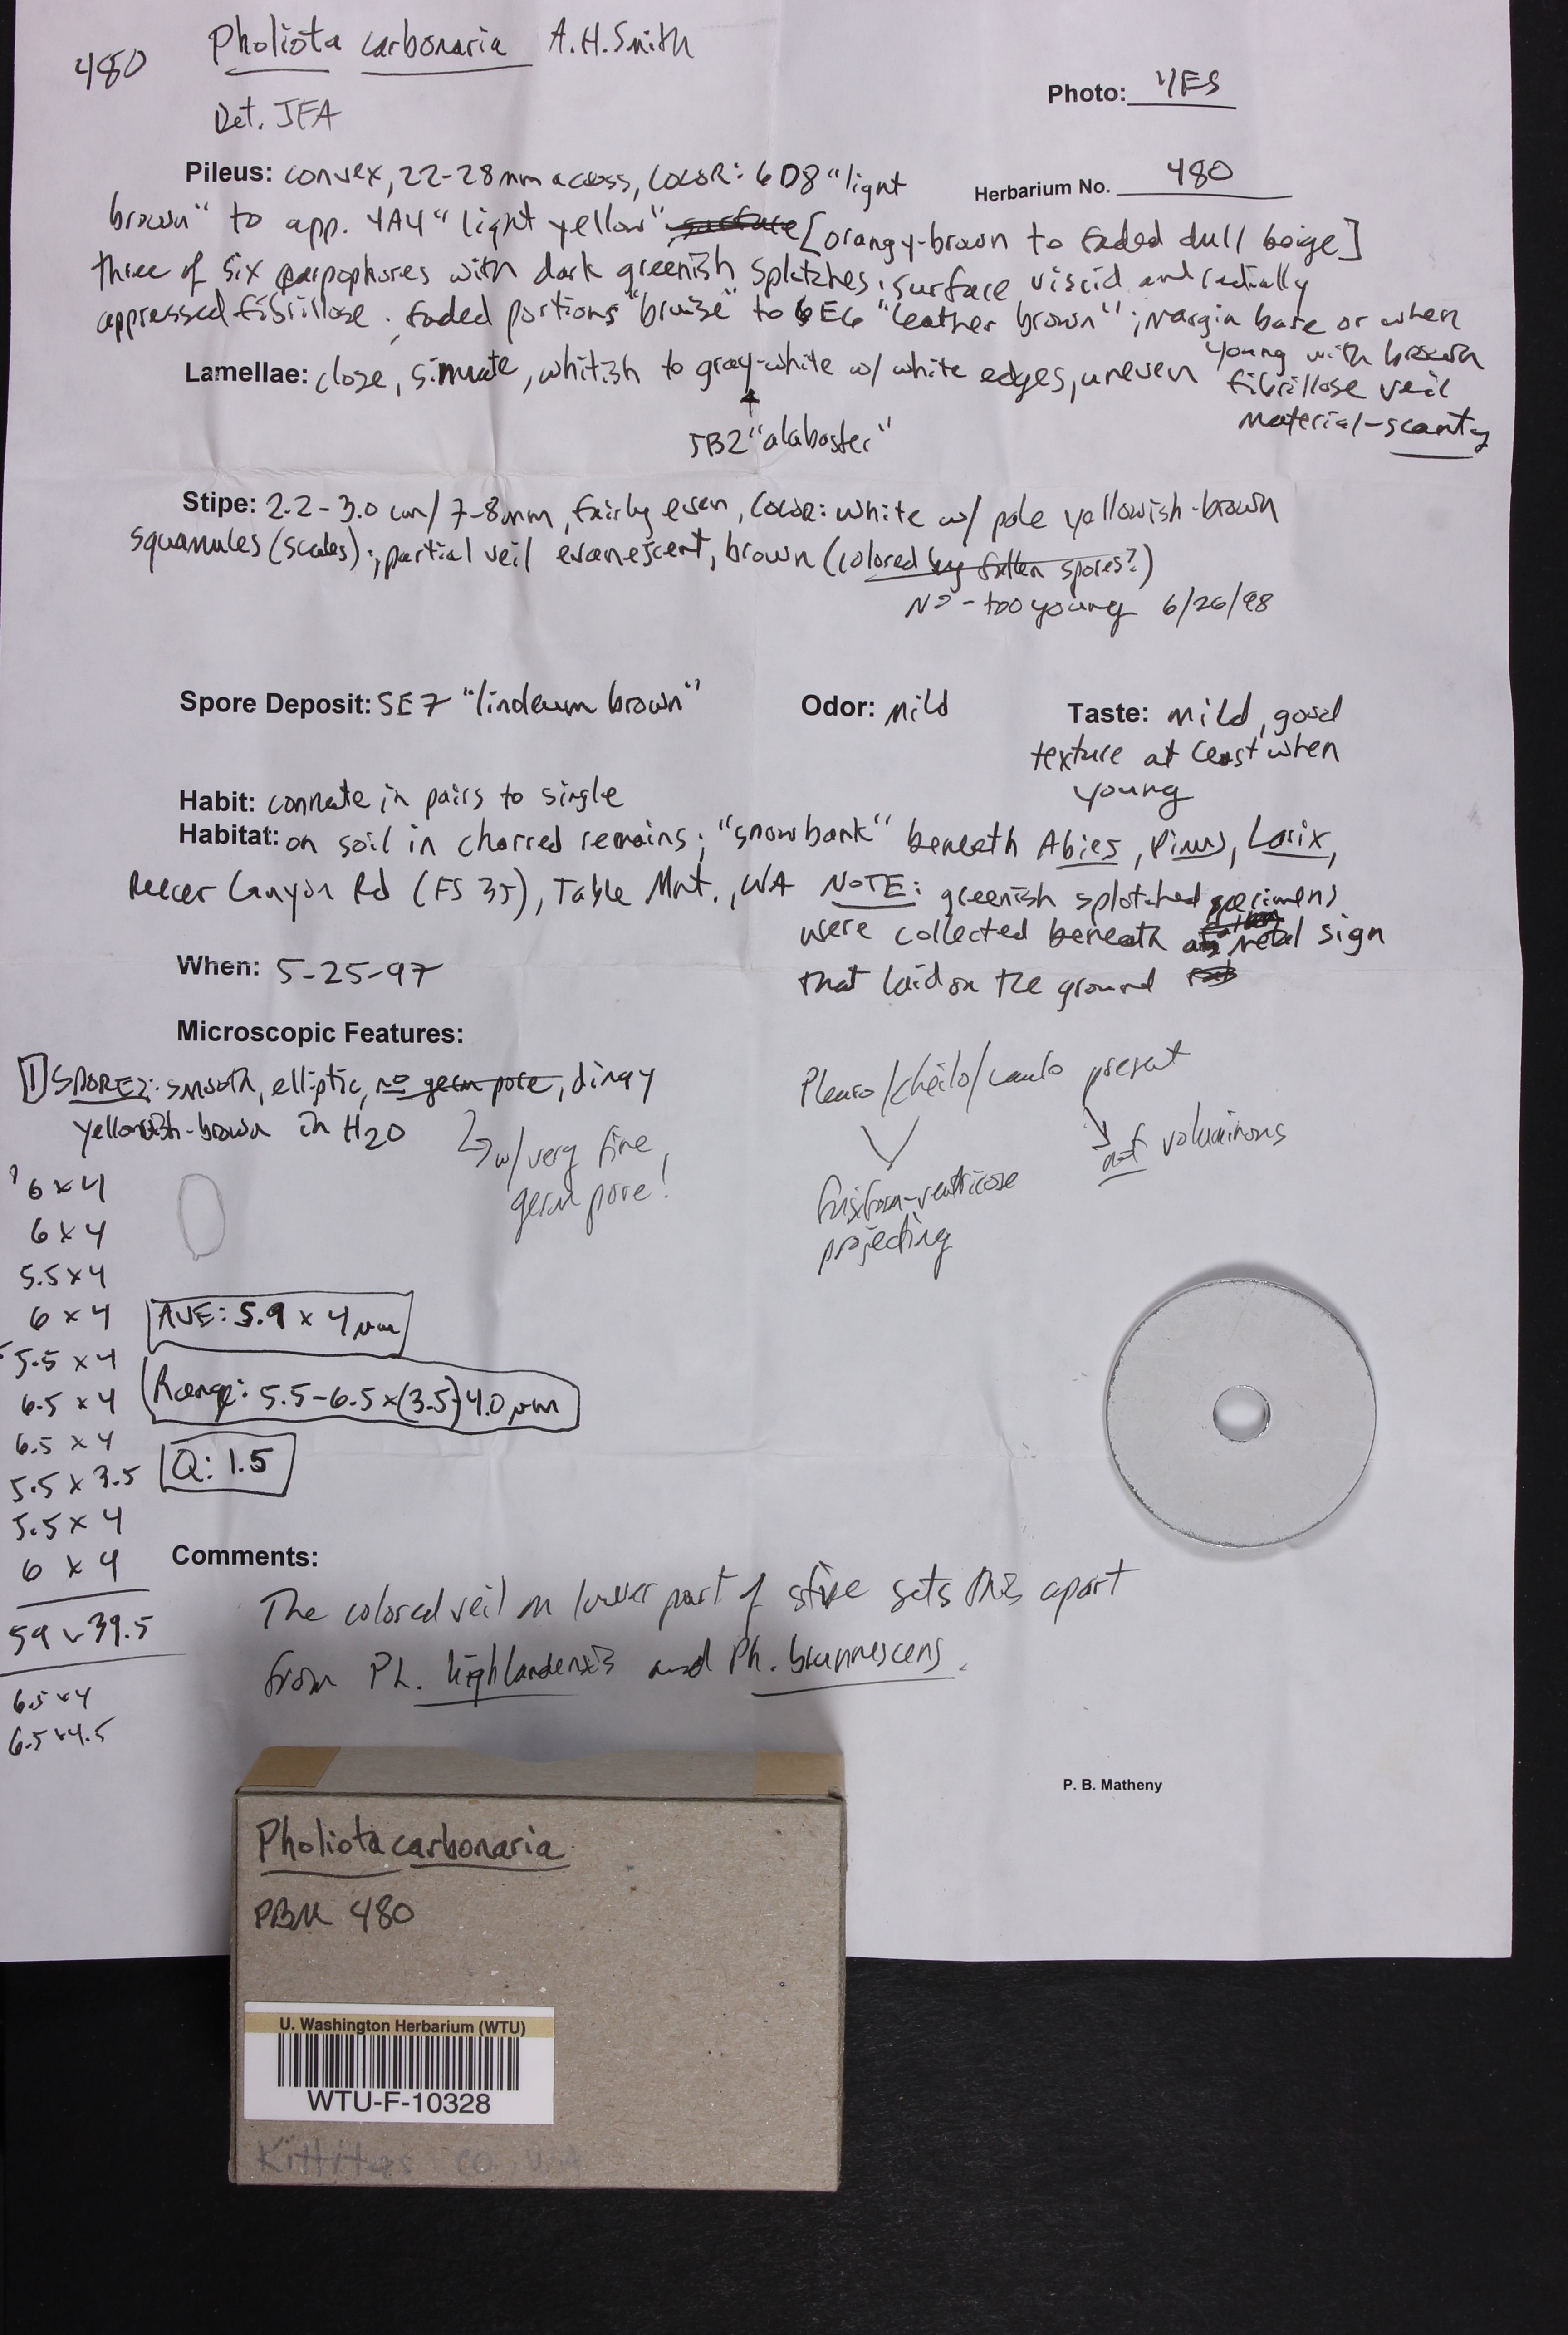 480
Pholiota carbonaria A.H.Smith
Det. JFA
Photo: YES
Herbarium No. 480
Pileus: convex, 22-28mm across, COLOR: 6D8 "light
brown" to app. 4A4 "light yellow" surface [orangy-brown to faded dull beige]
three of six carpophores with dark greenish splotches; surface viscid and radially
appressed fibrillose. faded portions "bruise" to 6E6 "leather brown"; margin bare or when
young with brown
fibrillose veil
material-scanty
Lamellae: close, sinuate, whitish to gray-white w/ white edges, uneven
5B2 "alabaster"
Stipe: 2.2-3.0 cm/7-8mm, fairly even, COLOR: white w/ pale yellowish-brown
squamules (scales); partial veil evanescent, brown (colored by fallen spores?)
NO - too young 6/26/98
Spore Deposit: 5E7 "linoleum brown"
Odor: mild
Taste: mild, good
texture at least when
young
Habit: connate in pairs to single
Habitat: on soil in charred remains; "snowbank" beneath Abies, Pinus, Larix,
Reecer Canyon Rd (FS 35), Table Mnt., WA NOTE: greenish splotched specimens
were collected beneath a metal sign
that laid on the ground
When: 5-25-97
Microscopic Features:
1 SPORES: smooth, elliptic, no germ pore, dingy
yellowish-brown in H2O
w/ very fine
germ pore!
Pleuro/cheilo/caulo present
not voluminous
fusiform-ventricose
projecting
6 x 4
6 x 4
5.5 x 4
6 x 4
5.5 x 4
6.5 x 4
6.5 x 4
5.5 x 3.5
5.5 x 4
6 x 4
59 x 39.5
6.5 x 4
6.5 x 4.5
AVE: 5.9 x 4 µm
Range: 5.5-6.5 x (3.5)4.0 µm
Q: 1.5
Comments:
The colored veil on lower part of stipe sets this apart
from Ph. highlandensis and Ph. brunnescens.
P. B. Matheny
Pholiota carbonaria
PBM 480
U. Washington Herbarium (WTU)
WTU-F-10328
Kittitas co., WA